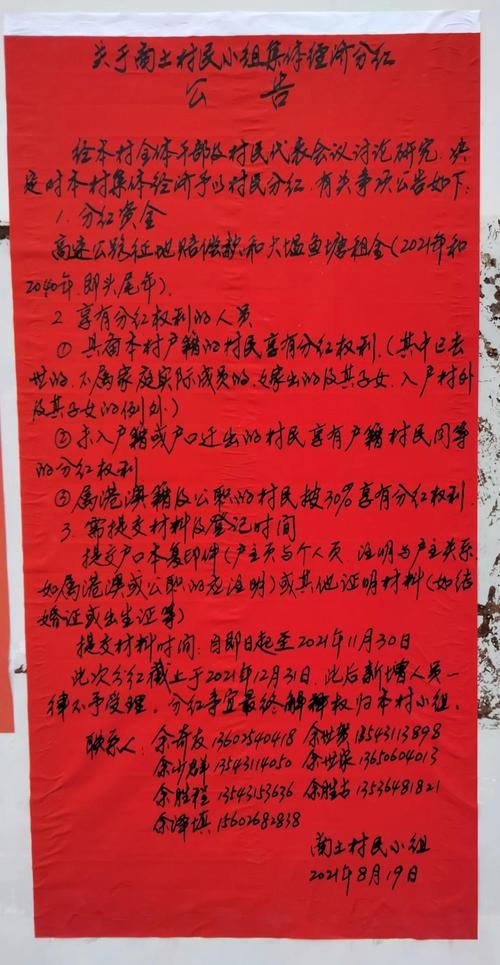 关于南土村民小组集体经济分红
公告
经本村全体干部及村民代表会议讨论研究，决
定对本村集体经济予以村民分红，有关事项公告如下：
1. 分红资金
高速公路征地赔偿款和大塭鱼塘租金（2021年和
2040年，即头尾年）。
2 享有分红权利的人员
① 具有本村户籍的村民享有分红权利。（其中已去
世的，不属家庭实际成员的，嫁出的及其子女，入户村外
及其子女的例外）
② 未入户籍或户口迁出的村民享有户籍村民同等
的分红权利
③ 属港澳籍及公职的村民按30%享有分红权利
3. 需提交材料及登记时间
提交户口本复印件（户主页与个人页，注明与户主关系
如属港澳或公职的应注明）或其他证明材料（如结
婚证或出生证等）
提交材料时间：自即日起至2021年11月30日
此次分红截止于2021年12月31日，此后新增人员一
律不予受理。分红事宜最终解释权归本村小组。
联系人：余奇友 13602540418 余世贺 18543113898
余 群 13543114050 余世 13650604013
余胜程 13543153636 余胜 13536481821
余泽填 15602682838
南土村民小组
2021年8月19日